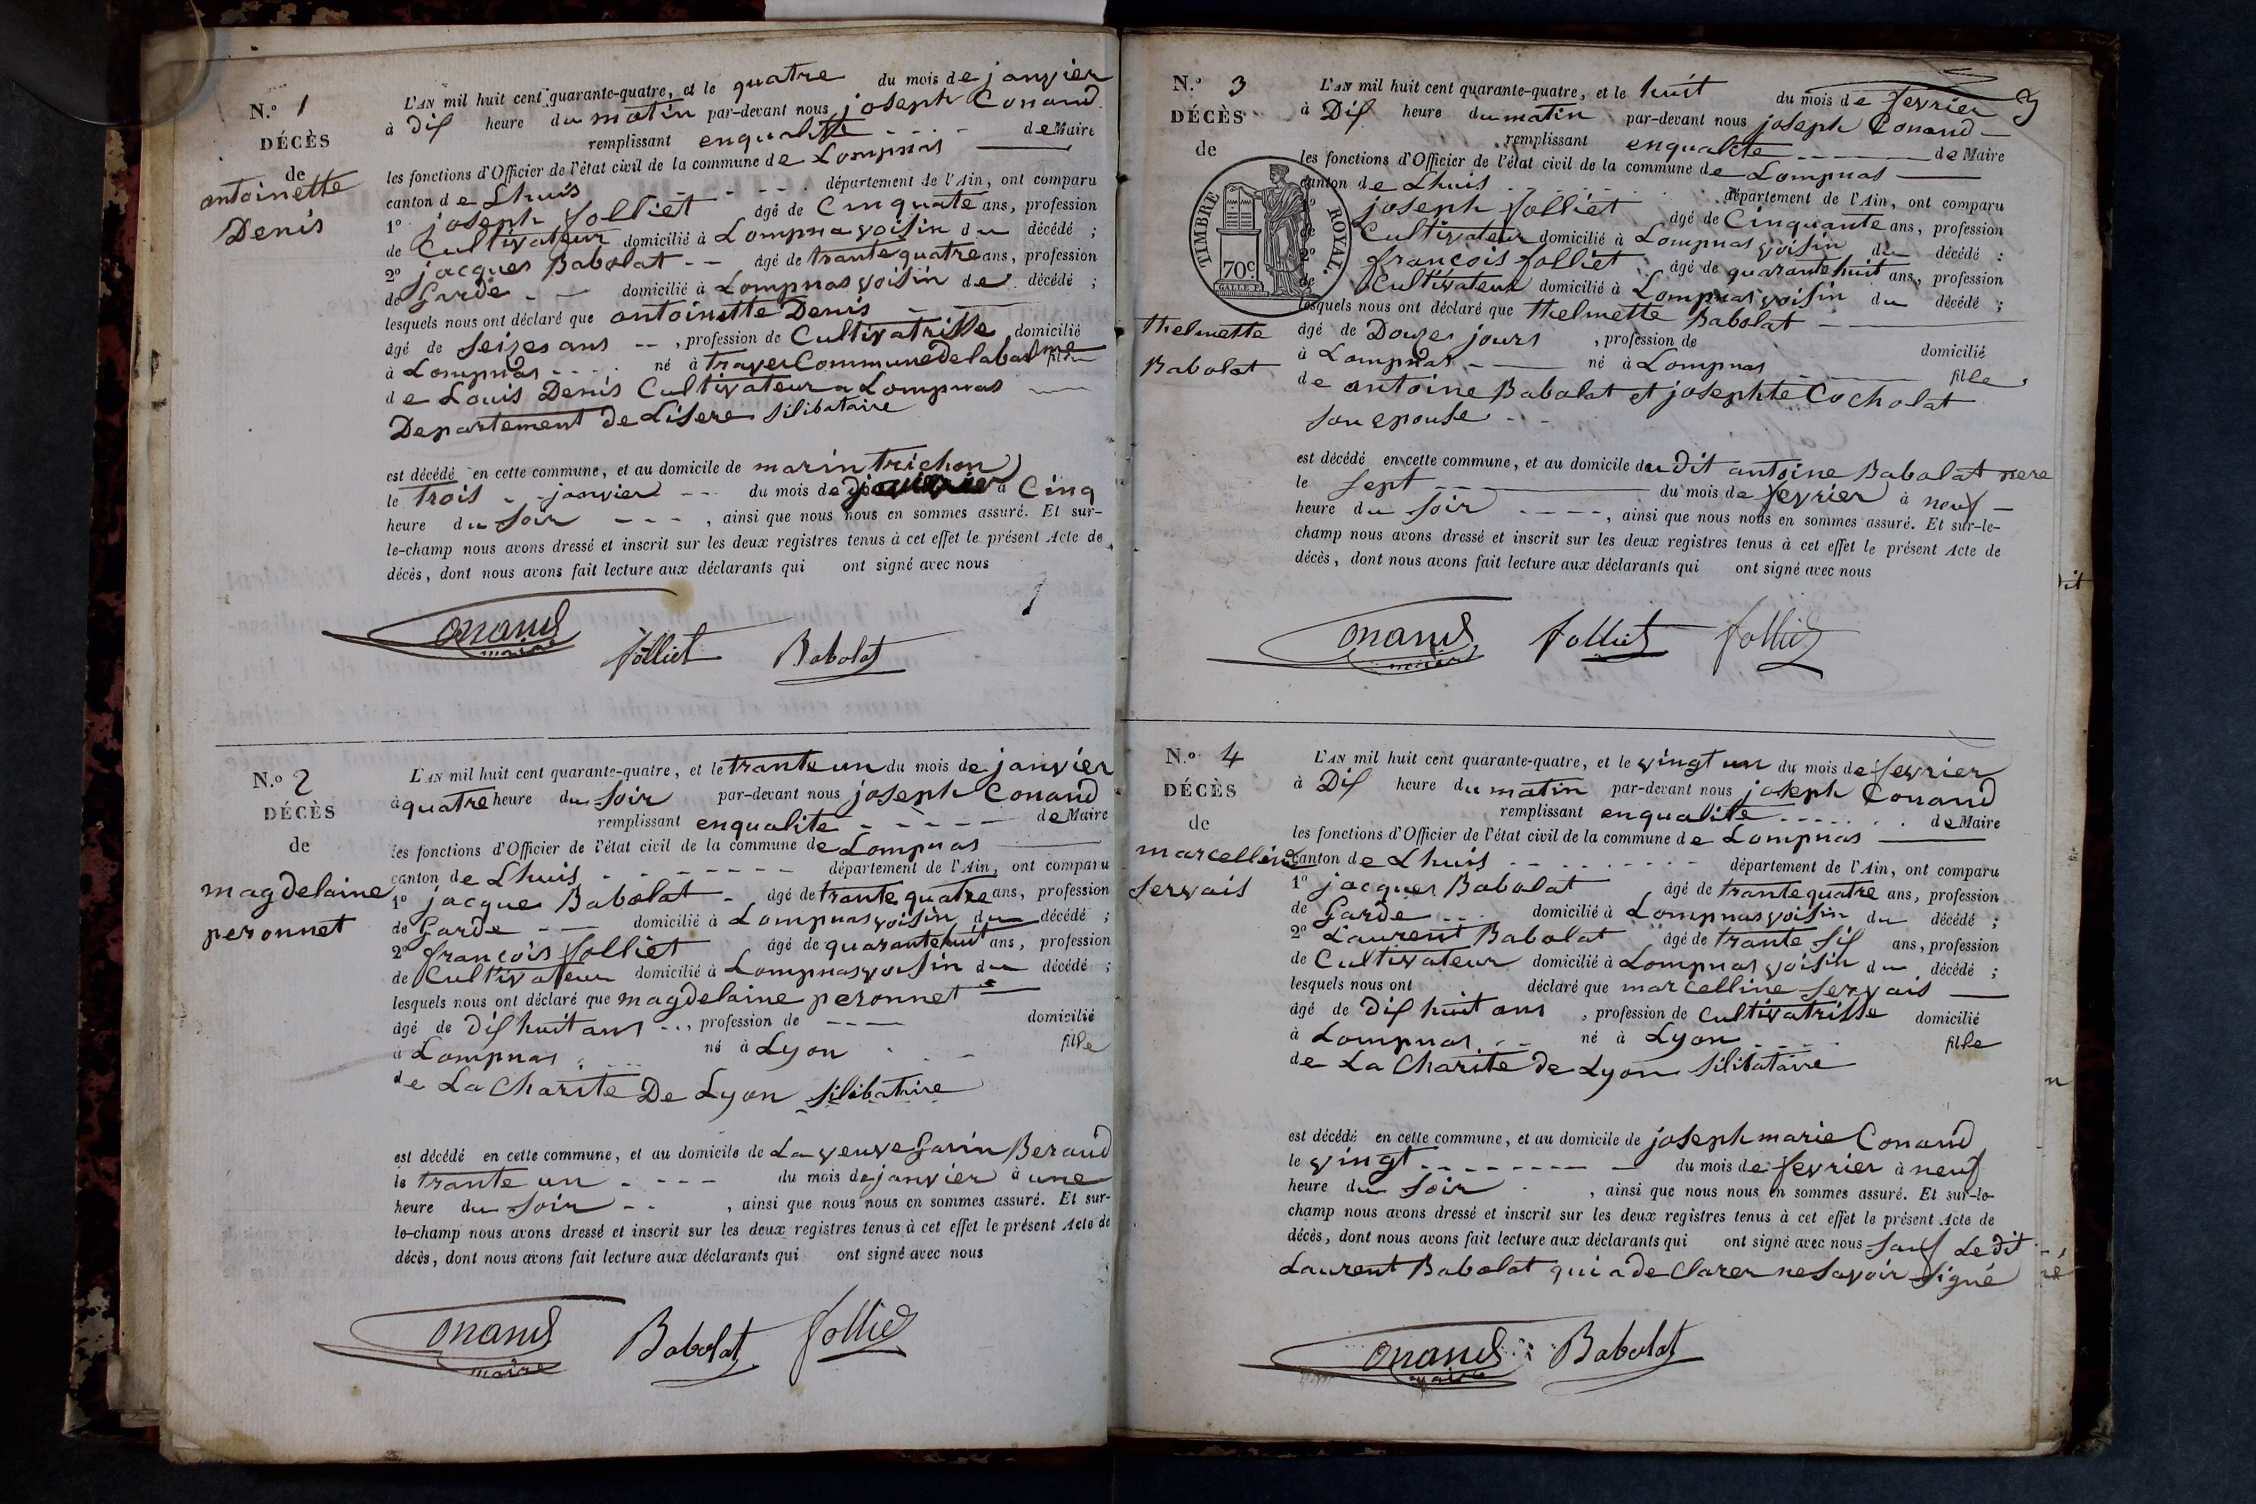 N.º 1
DÉCÈS
de
antoinette
Denis
L'AN mil huit cent quarante-quatre, et le quatre du mois de janvier
à Dix heure du matin par-devant nous joseph Conand
remplissant enqualitte - - - - de Maire
les fonctions d'Officier de l'état civil de la commune de Lompnas
canton de Lhuis - - - - département de l'Ain, ont comparu
1º joseph folliet âgé de Cinquate ans, profession
de Cultivateur domicilié à Lompna voisin du décédé ;
2º jacques Babolat - - âgé de trantequatre ans, profession
de Garde - - domicilié à Lompnas voisin de décédé ;
lesquels nous ont déclaré que antoinette Denis
âgé de seizes ans - - , profession de Cultivatrisse domicilié
à Lompnas - - - né à traver Commune de labalme fille
de Louis Denis Cultivateur a Lompnas
Departement de Lisere silibataire
est décédé en cette commune, et au domicile de marin trichon
le trois - - janvier - - du mois de à Cinq
heure du soir - - - , ainsi que nous nous en sommes assuré. Et sur-
le-champ nous avons dressé et inscrit sur les deux registres tenus à cet effet le présent Acte de
décès, dont nous avons fait lecture aux déclarants qui ont signé avec nous
1
Conand maire folliet Babolat
N.º 2
DÉCÈS
de
magdelaine
peronnet
L'AN mil huit cent quarante-quatre, et le trante un du mois de janvier
à quatre heure du soir par-devant nous joseph Conand
remplissant enqualite - - - - - de Maire
les fonctions d'Officier de l'état civil de la commune de Lompnas
canton de Lhuis - - - - - - département de l'Ain, ont comparu
1º jacque Babolat - âgé de trante quatre ans, profession
de Garde - - domicilié à Lompnas voisin du décédé ;
2º francois folliet âgé de quarantehuit ans, profession
de Cultivateur domicilié à Lompnas voisin du décédé ;
lesquels nous ont déclaré que magdelaine peronnet
âgé de dix huit ans - - , profession de - - - domicilié
à Lompnas - - - né à Lyon - - - fille
de La Charite De Lyon silibatire
est décédé en cette commune, et au domicile de La veuve Garin Beraud
le trante un - - - - du mois de janvier à une
heure du soir - - , ainsi que nous nous en sommes assuré. Et sur-
le-champ nous avons dressé et inscrit sur les deux registres tenus à cet effet le présent Acte de
décès, dont nous avons fait lecture aux déclarants qui ont signé avec nous
Conand maire Babolat folliet
3
N.º 3
DÉCÈS
de
TIMBRE ROYAL.
70c.
thelmette
Babolat
L'AN mil huit cent quarante-quatre, et le huit du mois de fevrier
à Dix heure du matin par-devant nous joseph Conand
remplissant enqualite - - - de Maire
les fonctions d'Officier de l'état civil de la commune de Lompnas
canton de Lhuis - - - - département de l'Ain, ont comparu
1º joseph folliet âgé de Cinquante ans, profession
de Cultivateur domicilié à Lompnas voisin du décédé :
2º francois folliet âgé de quarantehuit ans, profession
de Cultivateur domicilié à Lompnas voisin du décédé ;
lesquels nous ont déclaré que thelmette Babolat
âgé de Douzes jours , profession de domicilié
à Lompnas - - né à Lompnas fille
de antoine Babolat et josephte Cocholat
son epouse - -
est décédé en cette commune, et au domicile du dit antoine Babolat pere
le sept du mois de fevrier à neuf
heure du soir - - - - , ainsi que nous nous en sommes assuré. Et sur-le-
champ nous avons dressé et inscrit sur les deux registres tenus à cet effet le présent Acte de
décès, dont nous avons fait lecture aux déclarants qui ont signé avec nous
Conand maire folliet folliet
N.º 4
DÉCÈS
de
marcelline
servais
L'AN mil huit cent quarante-quatre, et le vingt un du mois de fevrier
à Dix heure du matin par-devant nous joseph Conand
remplissant enqualite - - - - - de Maire
les fonctions d'Officier de l'état civil de la commune de Lompnas
canton de Lhuis - - - - - - département de l'Ain, ont comparu
1º jacques Babolat âgé de trantequatre ans, profession
de Garde - - domicilié à Lompnas voisin du décédé ;
2º Laurent Babolat âgé de trante six ans, profession
de Cultivateur domicilié à Lompnas voisin du décédé ;
lesquels nous ont déclaré que marcelline servais
âgé de dix huit ans , profession de Cultivatrisse domicilié
à Lompnas - - né à Lyon - - - fille
de La Charite de Lyon silibataire
est décédé en cette commune, et au domicile de joseph marie Conand
le vingt - - - - - - - du mois de fevrier à neuf
heure du soir - , ainsi que nous nous en sommes assuré. Et sur-le-
champ nous avons dressé et inscrit sur les deux registres tenus à cet effet le présent Acte de
décès, dont nous avons fait lecture aux déclarants qui ont signé avec nous sauf Le dit
Laurent Babolat qui a de clarer ne savoir signé
Conand maire Babolat